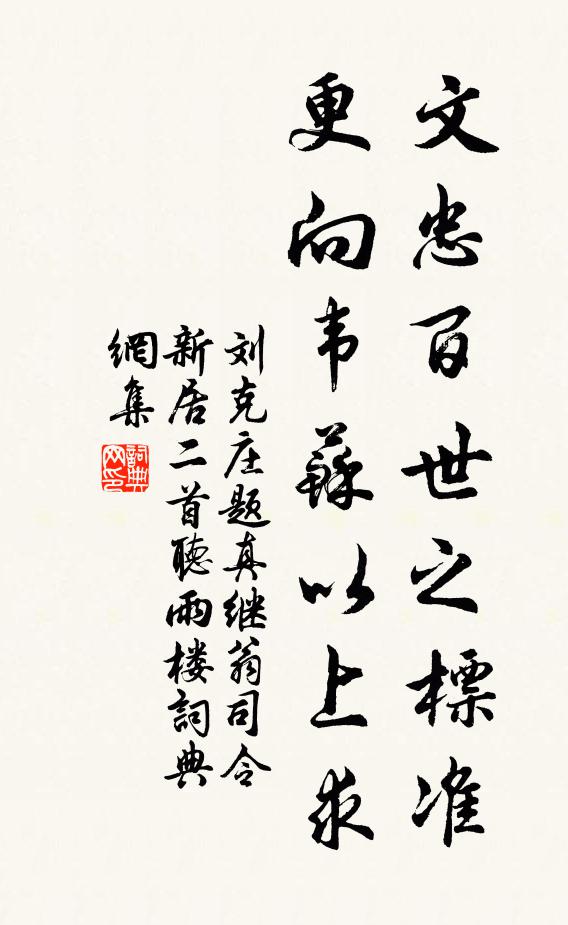 文忠百世之標准
更向韦蘇以上求
刘克庄题真继翁司令
新居二首聽雨楼詞典
網集
詞典
网印